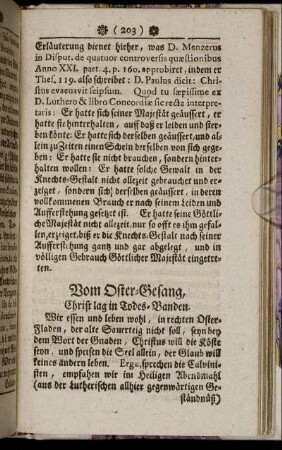 ( 203 )
Erläuterung dienet hieher, was D. Menzerus
in Disput. de quatuor controversis quæstionibus
Anno XXI. part. 4. p. 160. approbiret, indem er
Thes. 119. also schreibet: D. Paulus dicit: Chri-
stos evacuvit seipsum. Quod tu sæpissime ex
D. Luthero & libro Concordiæ sic recte interpre-
taris: Er hatte sich seiner Majestät geäussert, er
hatte sie hinterhalten, auff daß er leiden und ster-
ben könte: Er hatte sich derselben geäussert, und al-
lein zu Zeiten einen Schein derselben von sich gege-
ben: Er hatte sie nicht brauchen, sondern hinter-
halten wollen: Er hatte solche Gewalt in der
Knechts-Gestalt nicht allezeit gebrauchet und er-
zeiget, sondern sich) derselben geäussert, in deren
vollkommenen Brauch er nach seinem Leiden und
Aufferstehung gesetzt ist. Er hatte seine Göttli-
che Majestät nicht allezeit, nur so offt es ihm gefal-
len, erzeiget, biß er die Knechts-Gestalt nach seiner
Aufferstehung gantz und gar abgelegt, und in
völligen Gebrauch Göttlicher Majestät eingetre-
ten.
Vom Oster-Gesang,
Christ lag in Todes-Banden.
Wir essen und leben wohl, in rechten Oster-
Fladen, der alte Sauerteig nicht soll, seyn bey
dem Wort der Gnaden, Christus will die Köste
seyn, und speisen die Seel allein, der Glaub will
keines andern leben. Ergo, sprechen die Calvini-
sten, empfahen wir im Heiligen Abendmahl
(aus der Lutherischen allhier gegenwärtigen Ge-
ständnüß)